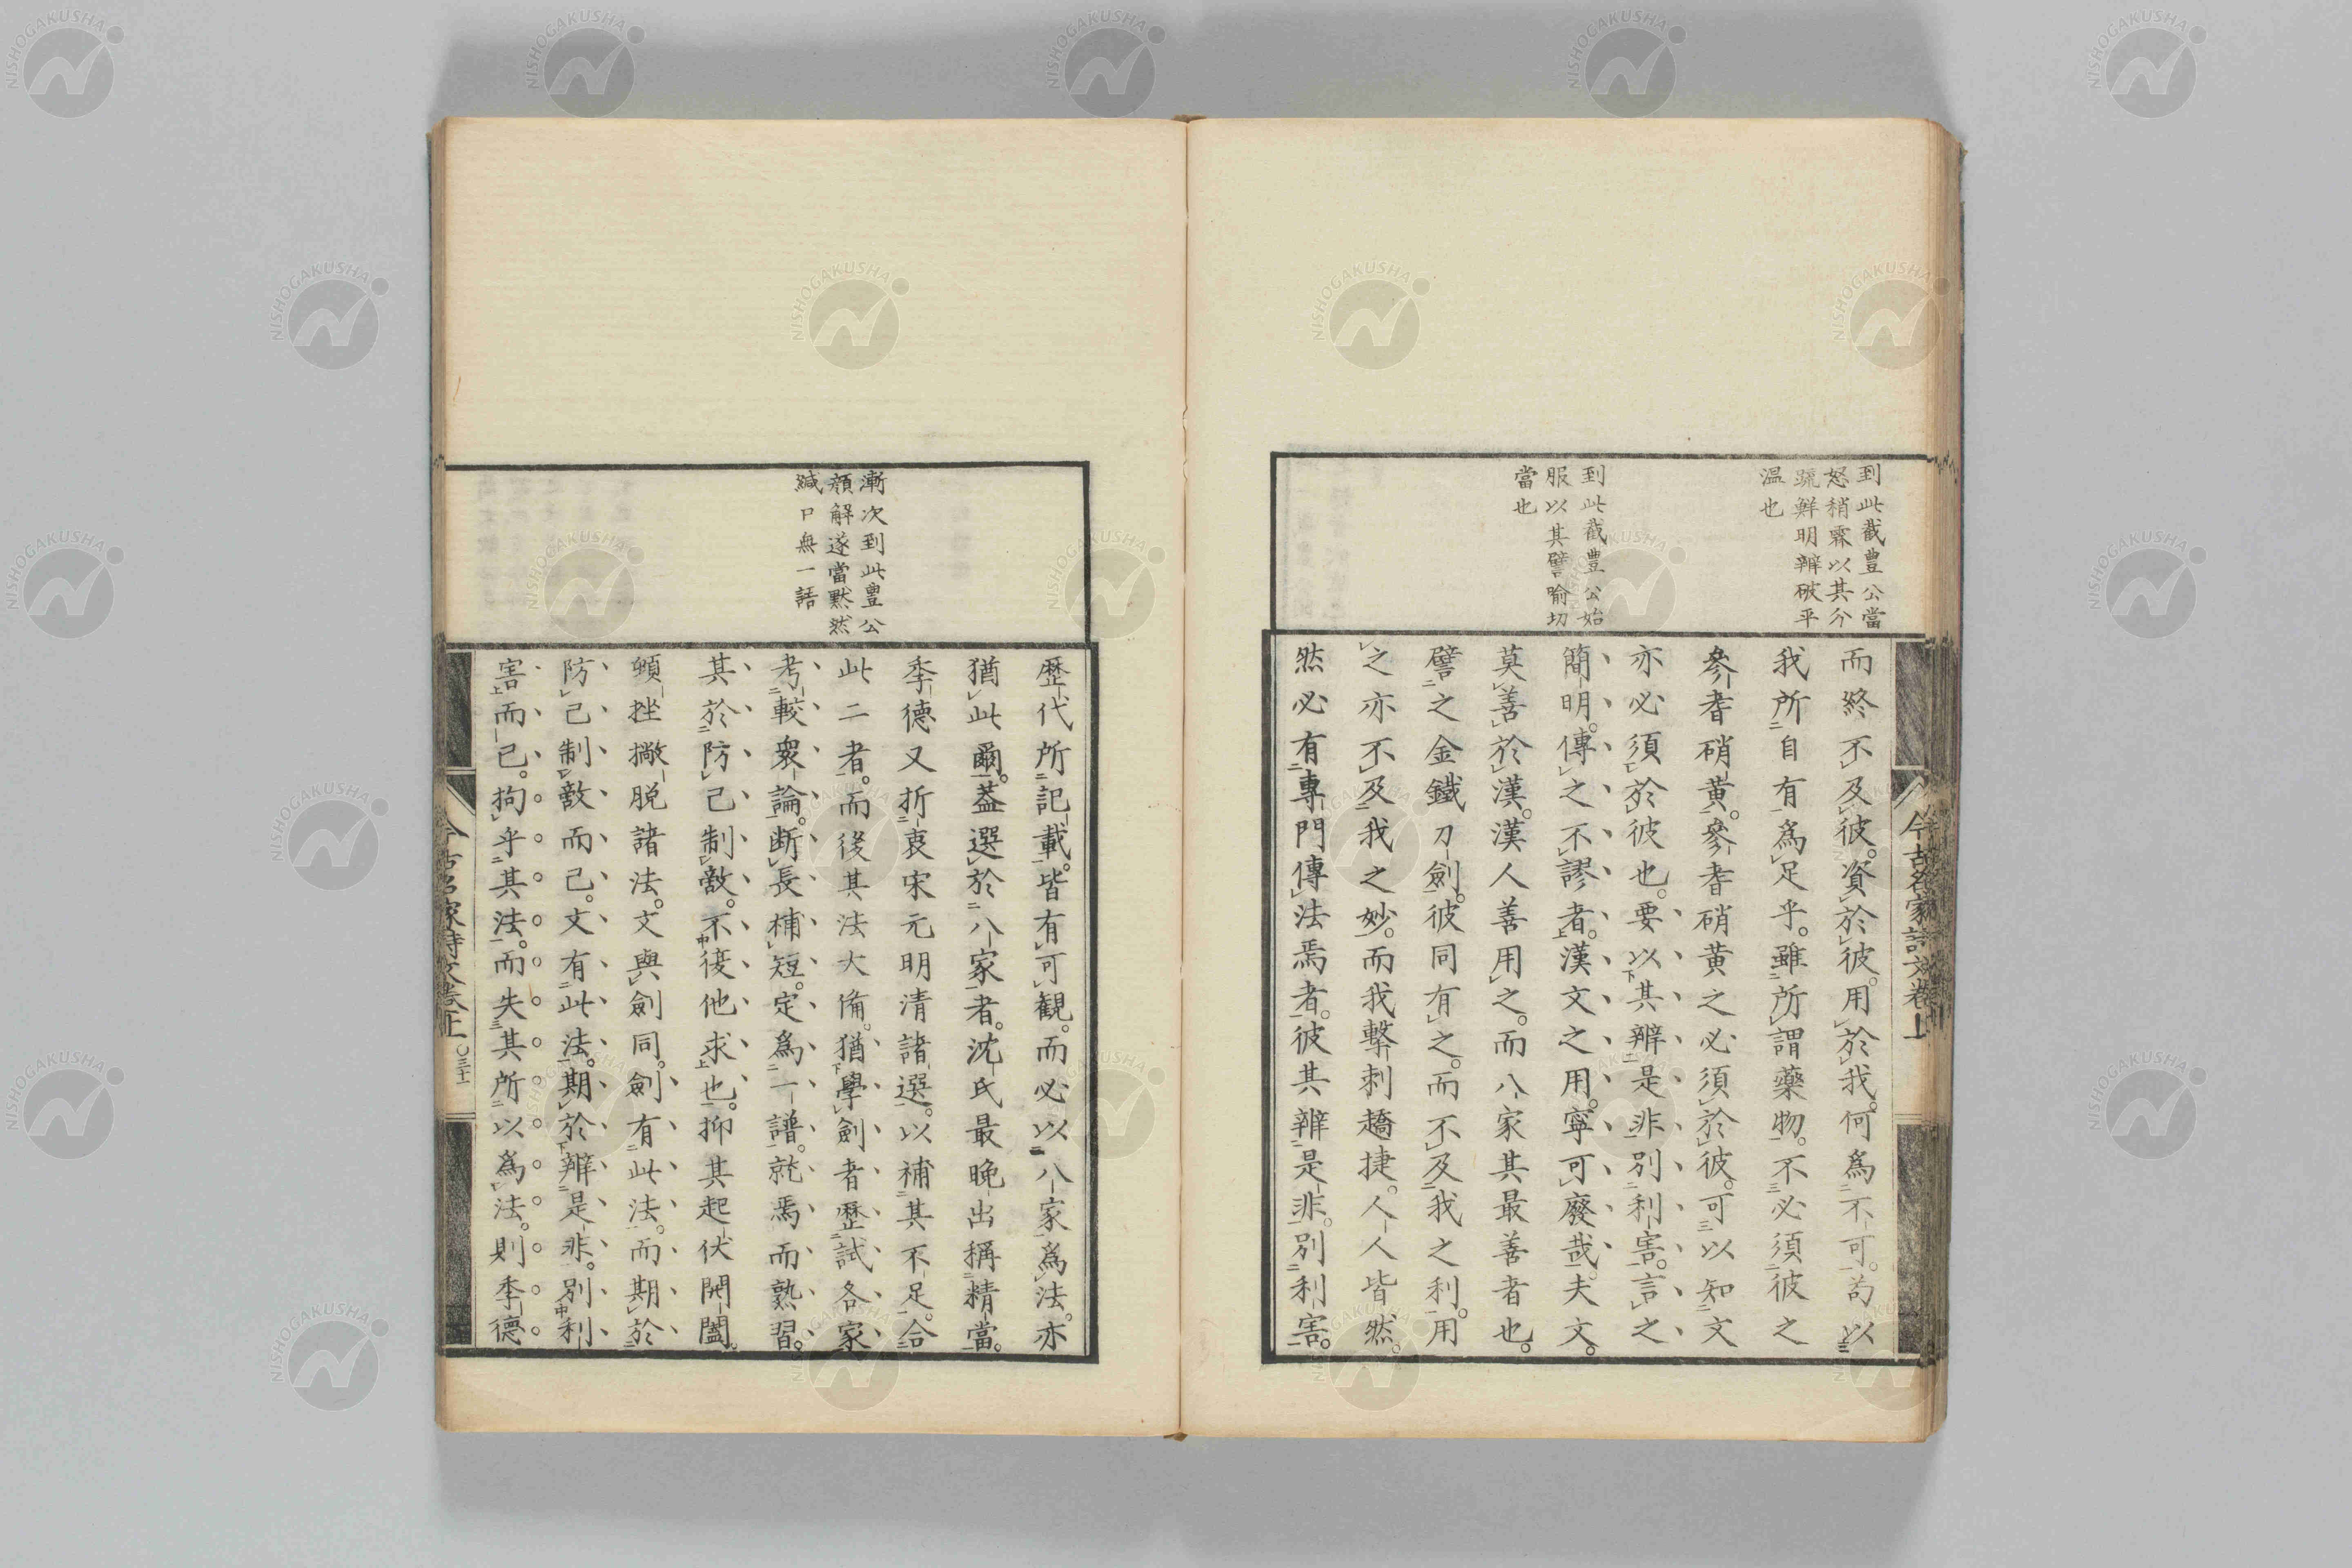 到此截豊公當
怒稍霖以其分
疏鮮明辨破平
溫也
到此截豊公始
服以其譬喻切
當也
而終不及彼。資於彼。用於我。何爲不可。苟以
我所自有爲足乎。雖所謂藥物。不必須彼之
參耆硝黄。參耆硝黄之必須於彼。可以知文
亦必須於彼也。要以其辨是非別利害。言之
簡明。傳之不謬者。漢文之用。寧可廢哉。夫文
莫善於漢。漢人善用之。而八家其最善者也。
譬之金鐵刀劍。彼同有之。而不及我之利。用
之亦不及我之妙。而我擊刺趫捷。人人皆然。
然必有專門傳法焉者。彼其辨是非。別利害。
今古名家詩文卷上
漸次到此豊公
顔解遂當默然
緘口無一語
歷代所記載。皆有可觀。而必以八家爲法。亦
猶此爾。葢選於八家者。沈氏最晩出稱精當。
季德又折衷宋元明清諸選。以補其不足。合
此二者。而後其法大備。猶學劍者歷試各家
考較衆論。断長補短。定爲一譜。就焉而熟習。
其於防己制敵。不復他求也。抑其起伏開闔
頓挫擻脱諸法。文與劍同。劍有此法。而期於
防己制敵而已。文有此法。期於辨是非。別利
害而已。拘乎其法。而失其所以爲法。則季德
今古名家詩文卷上
〇三十二